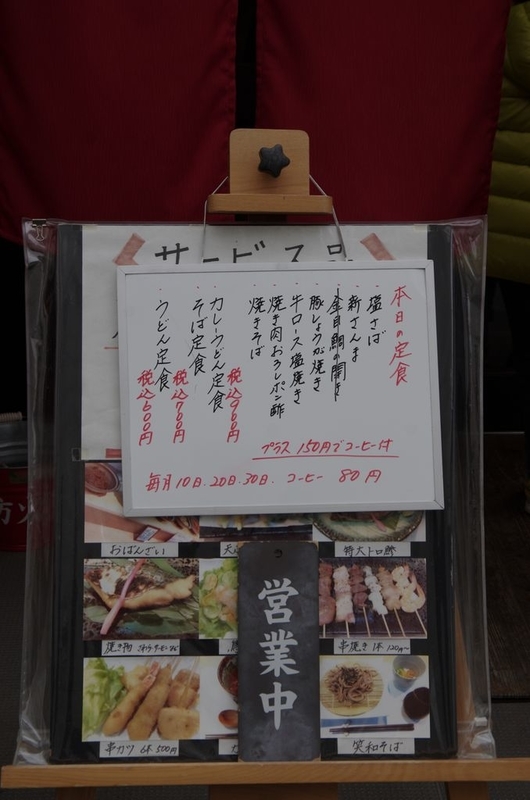 サービス品
本日の定食
塩さば
新さんま
金目鯛の開き
豚しょうが焼き
牛ロース塩焼き
焼き肉おろしポン酢
焼きそば
税込900円
カレーうどん定食
そば定食
税込700円
うどん定食
税込600円
プラス150円でコーヒー付
毎月10日.20日.30日. コーヒー 80円
おばんざい
特大トロ鯵
串焼き 1本 120円〜
串カツ 6本 500円
笑和そば
営業中